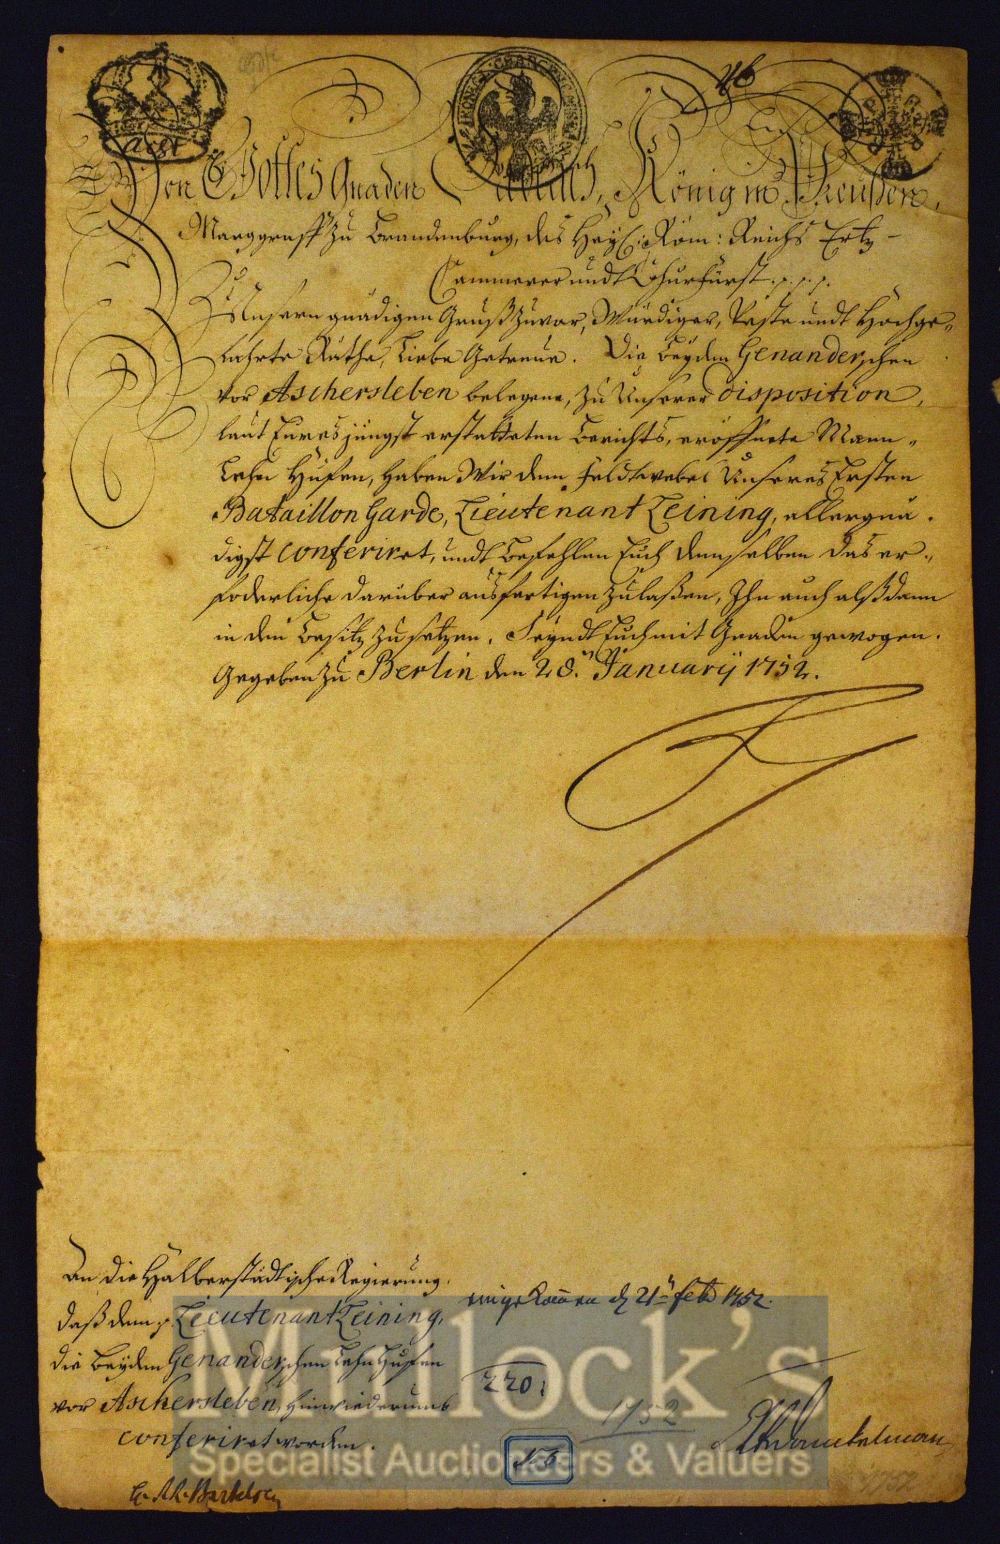 Von Gottes Gnaden Friderich, König in Preußen,
Marggraff zu Brandenburg, des Heyl: Röm: Reichs Ertz-
Cammerer undt Churfürst p. p. p.
Unsern gnädigen Gruß zuvor, Würdiger, Veste undt Hochge-
lahrte Räthe, Liebe Getreue. Die beyden Genanderschen
vor Aschersleben belegene, zu Unserer disposition,
laut Eures jüngst erstatteten Berichts, eröffnete Mann-
Lehn Hufen, haben Wir dem Feldtwebel Unseres Ersten
Bataillon Garde, Lieutenant Leining, allergnä-
digst conferiret, undt befehlen Euch demselben das er-
foderliche darüber ausfertigen zu laßen, Ihn auch alßdann
in den Besitz zu setzen. Seyndt Euch mit Gnaden gewogen.
Gegeben zu Berlin den 28. January 1752.
An die Halberstädtische Regierung.
daß dem p. Lieutenant Leining,
die beyden Genanderschen Lehn Hufen
vor Aschersleben, hinwiederumb
conferiret worden.
eingekommen d 21 Feb 1752.
220
1752
Mullock's
Specialist Auctioneers & Valuers
1752